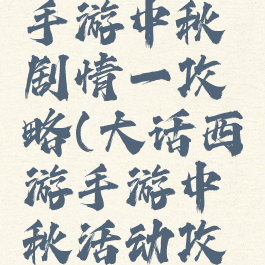 手游中秋
剧情一攻
略(大话西
游手游中
秋活动攻